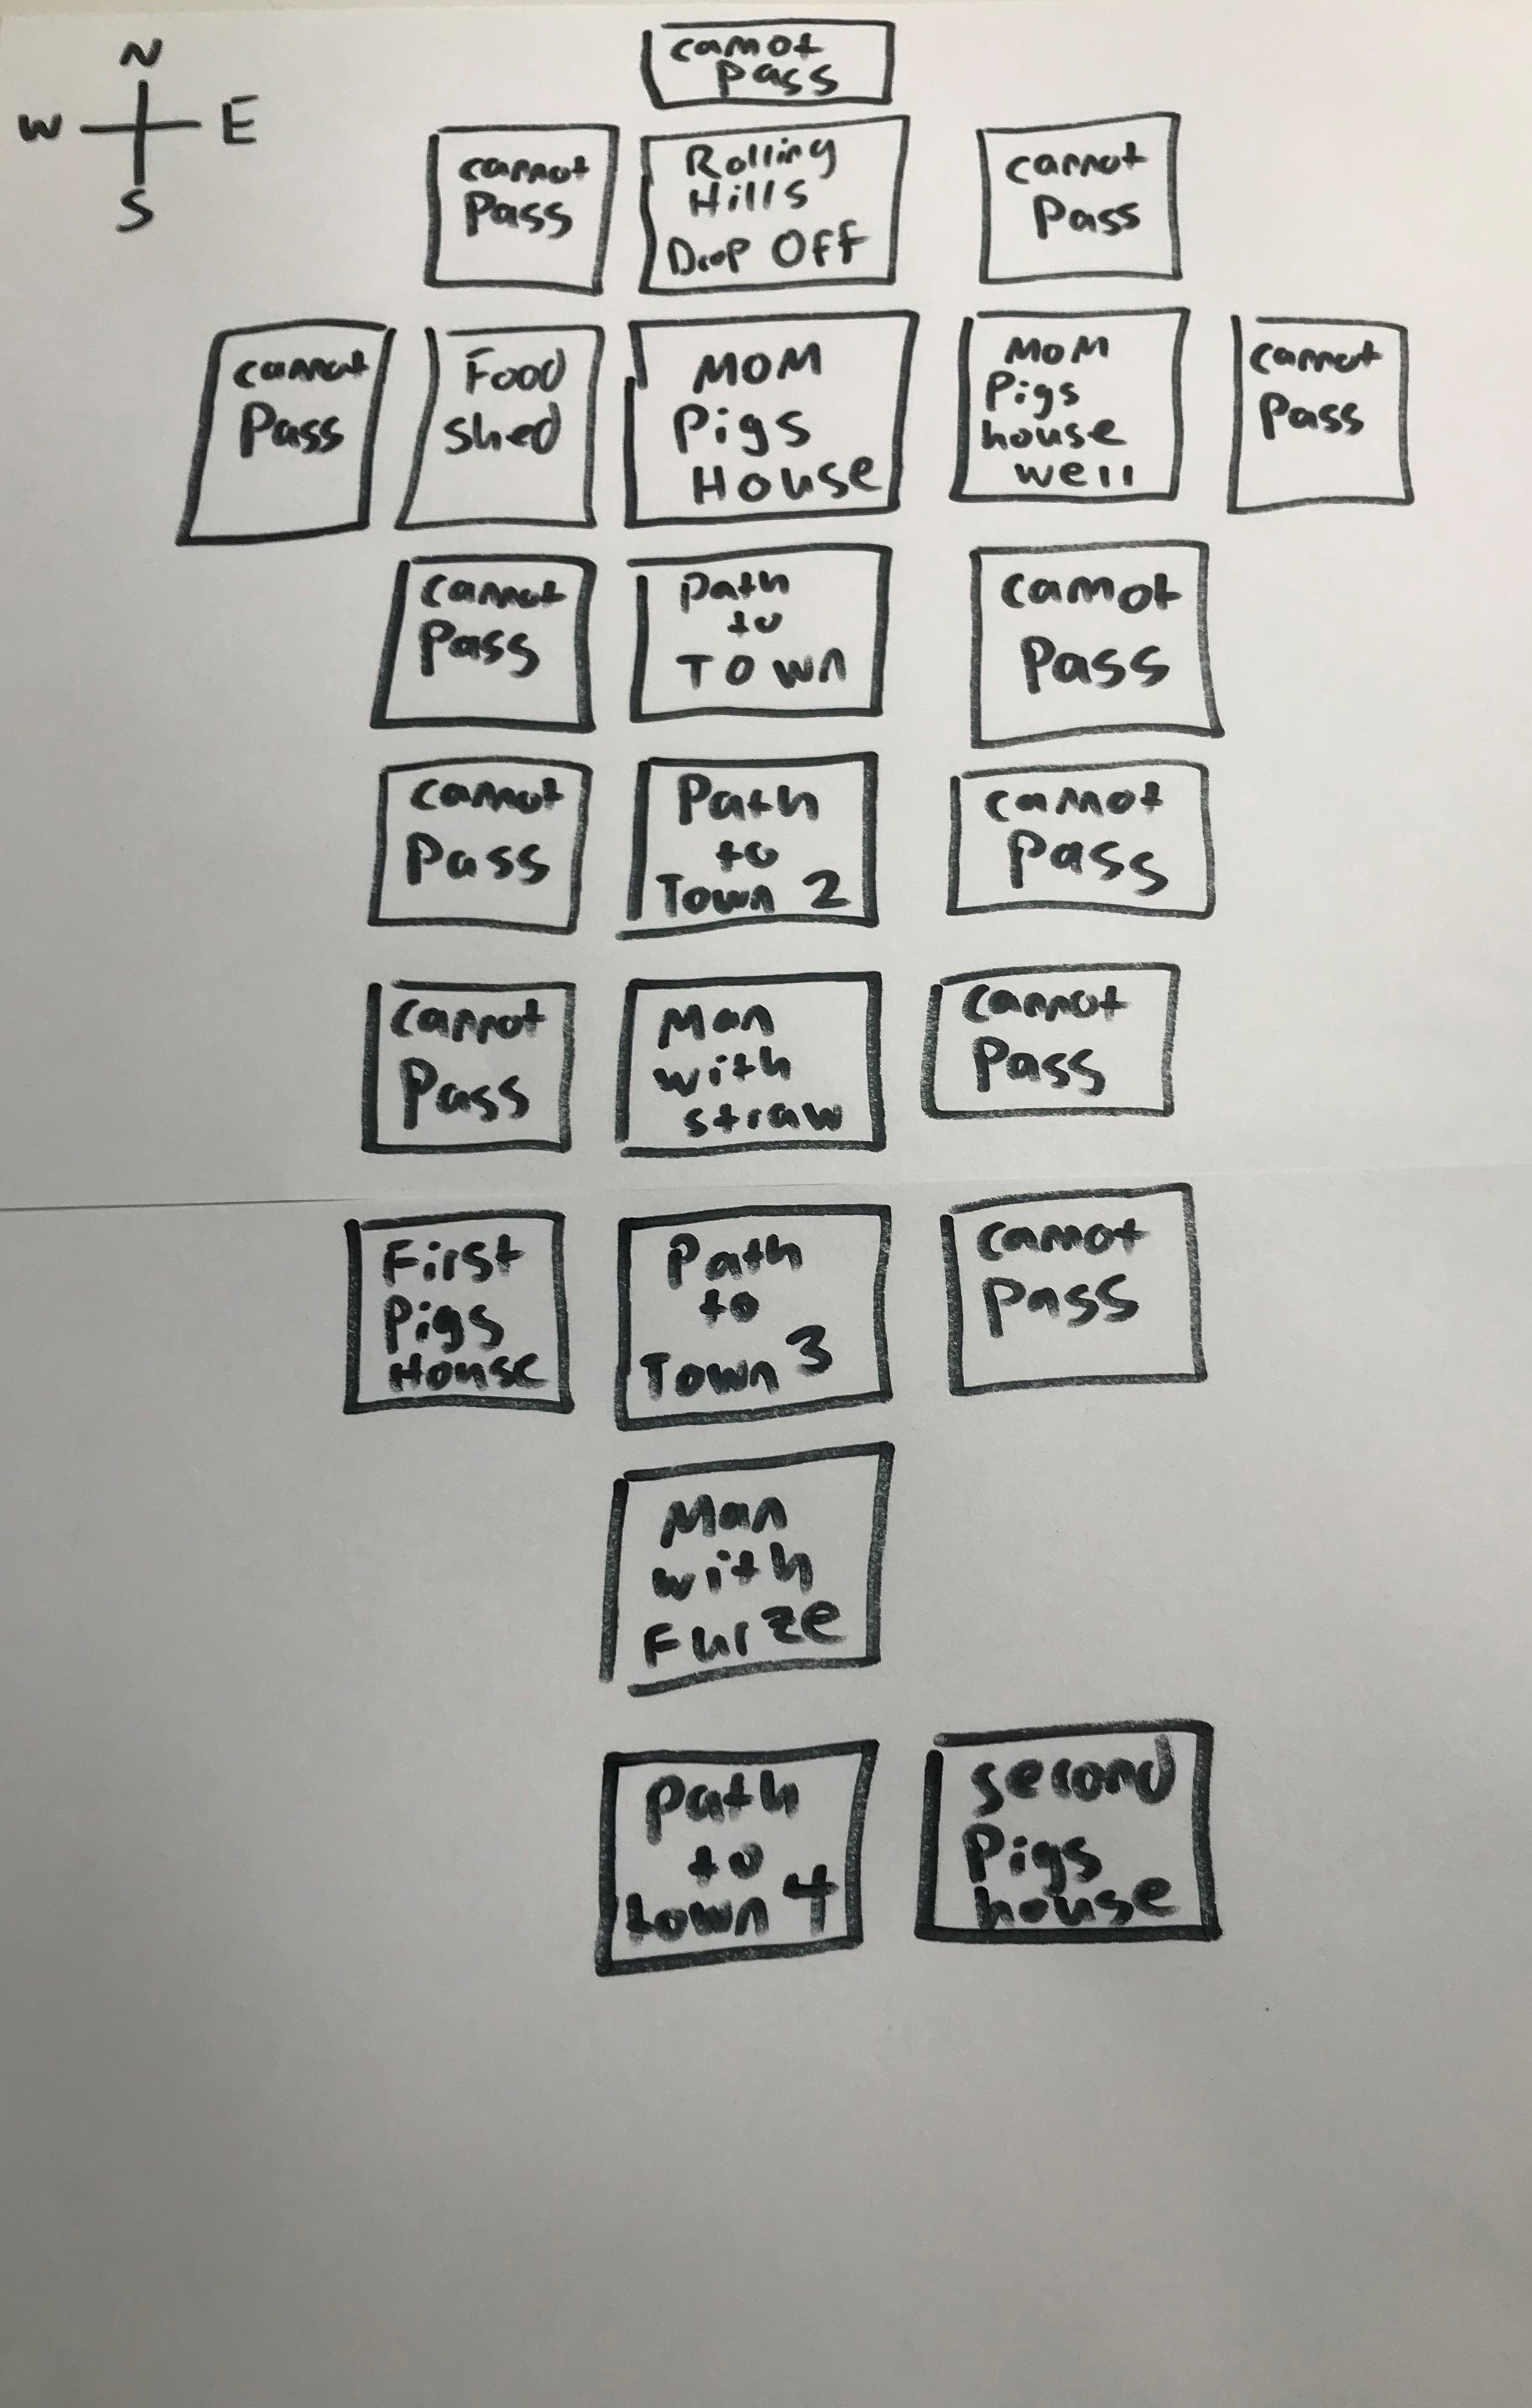 N
W E
S
cannot
Pass
cannot
Pass
Rolling
Hills
Drop Off
cannot
Pass
cannot
Pass
Food
shed
MOM
Pigs
House
MOM
Pigs
house
well
cannot
Pass
cannot
Pass
Path
to
TOWN
cannot
Pass
cannot
Pass
Path
to
Town 2
cannot
Pass
cannot
Pass
Man
with
straw
cannot
Pass
First
Pigs
House
Path
to
Town 3
cannot
Pass
Man
with
Furze
Path
to
town 4
second
Pigs
house